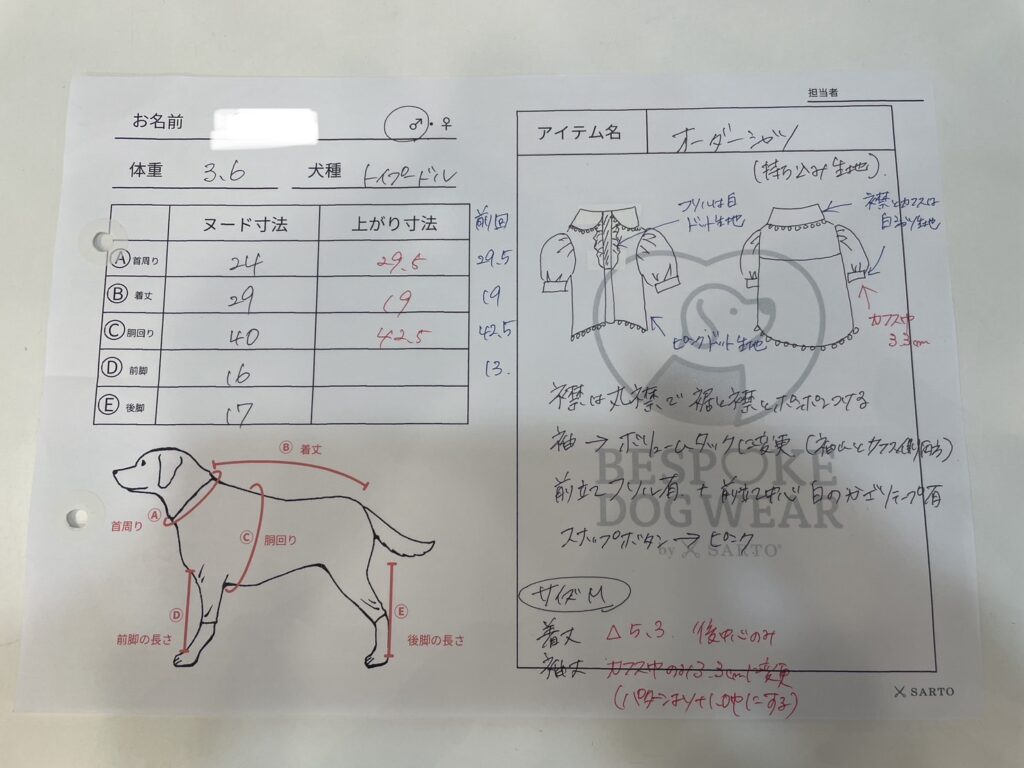 担当者
お名前
♂・♀
体重 3.6 犬種 トイプードル
ヌード寸法 上がり寸法 前回
Ⓐ首周り 24 29.5 29.5
Ⓑ着丈 29 19 19
Ⓒ胴回り 40 42.5 42.5
Ⓓ前脚 16 13.
Ⓔ後脚 17
Ⓑ 着丈
Ⓐ
首周り
Ⓒ 胴回り
Ⓓ
前脚の長さ
Ⓔ
後脚の長さ
アイテム名 オーダーシャツ
(持ち込み生地).
フリルは白
ドット生地
襟とカフスは
生地
ピンクドット生地
カフス巾
3.3cm
襟は丸襟で 裾と襟とポンポンつける
袖 → ボリュームタックに変更
前立てフリル有 + 前立て中心 白のかざりテープ有
スナップボタン → ピンク
BESPOKE
DOGWEAR
by SARTO
サイズM
着丈 △5.3. 後中心のみ
袖丈 カフス巾のみ3.3cmに変更
SARTO